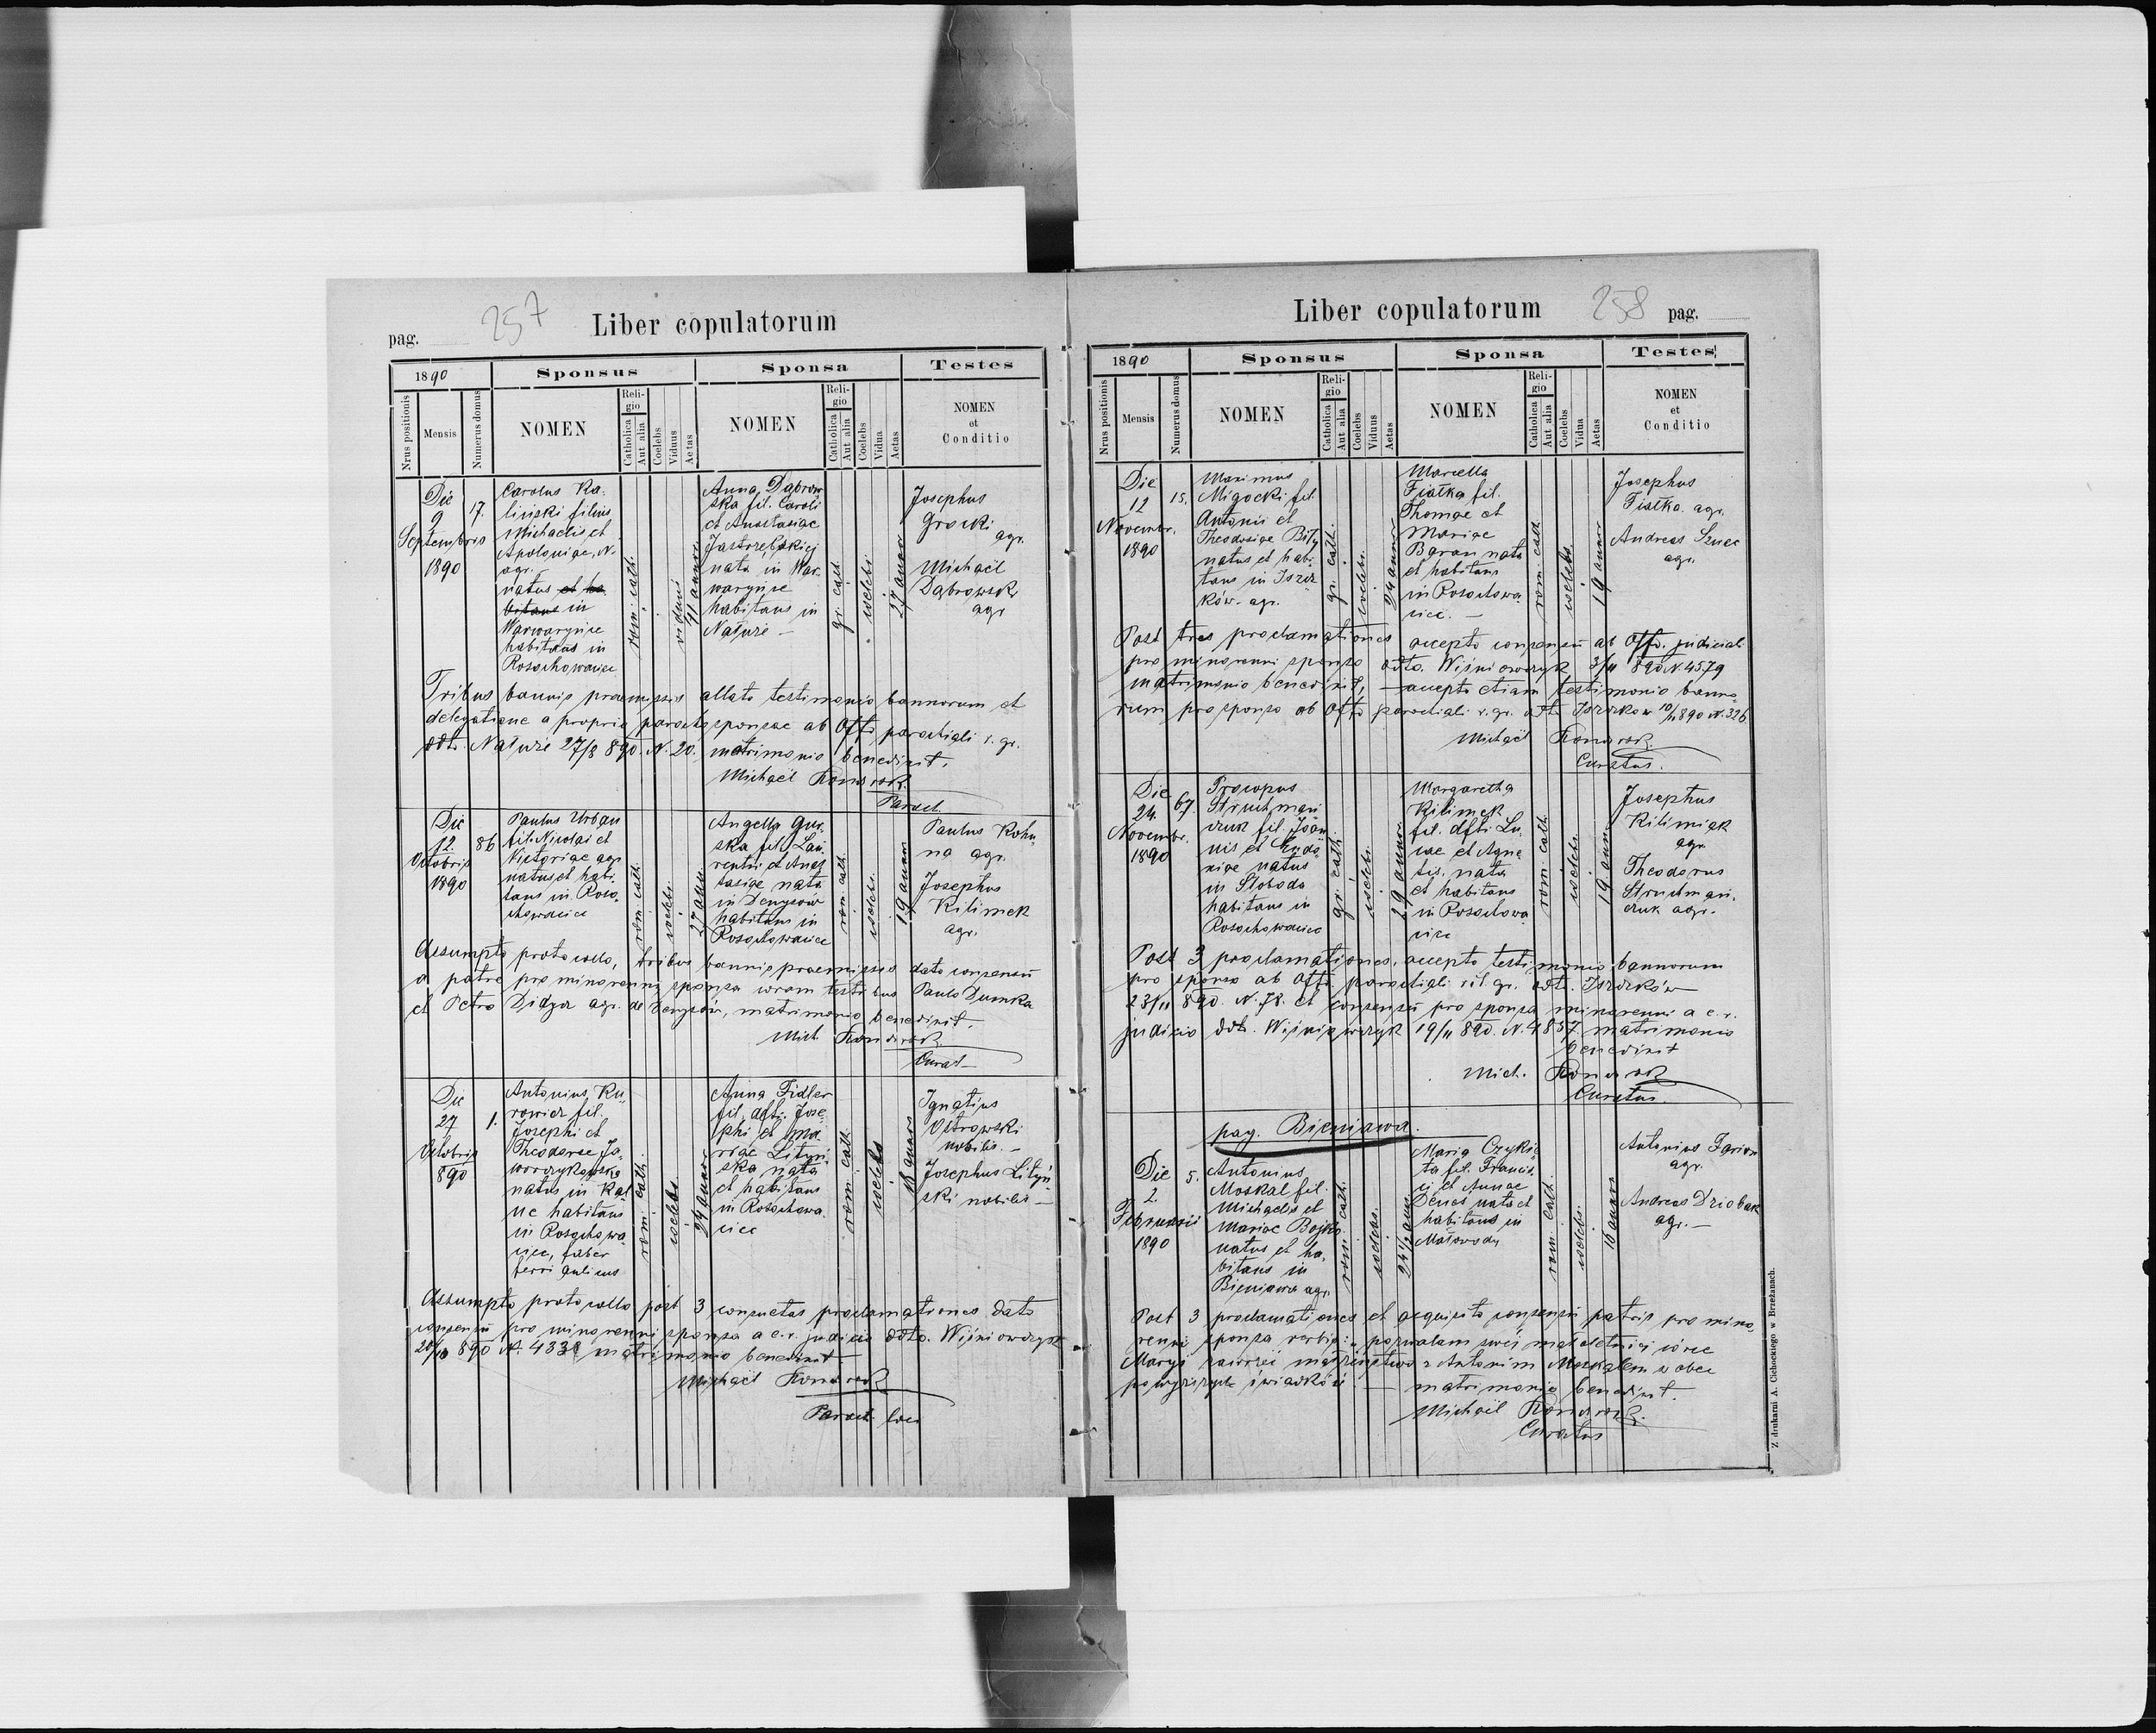 257
Liber copulatorum
pag.
1890
Sponsus
Sponsa
Testes
Nrus positionis
Mensis
Numerus domus
NOMEN
Religio
Catholica
Aut alia
Coelebs
Viduus
Aetas
NOMEN
Religio
Catholica
Aut alia
Coelebs
Vidua
Aetas
NOMEN
et
Conditio
Die
9
Septembris
1890
17.
Carolus Ka-
liński filius
Michaelis et
Apoloniae, N.
agr.
natus et ha
bitans in
Warwaryńce
habitans in
Rosochowaciec
rom. cath.
vidui
41 annor.
Anna Dąbrow
ska fil. Caroli
et Anastasiae
Jastrzębskiej
nata in War-
waryńce
habitans in
Nałuże —
gr. cath.
coelebs
27 annor
Josephus
Grocki
agr.
Michael
Dąbrowsk
agr
Tribus bannis praemissis allato testimonio bannorum et
delegatione a proprio parocho sponsae ab Offo parochiali r. gr.
ddto. Nałuże 27/8 890. N. 20. matrimonio benedixit.
Michaël
Paroch.
Die
12
Octobris
1890
86
Paulus Urban
fil. Nicolai et
Victoriae agr.
natus et habi-
tans in Roso-
chowaciec
rom. cath.
coelebs.
27 ann.
Angella Gur-
ska fil. Lau-
rentii et Anas
tasiae nata
in Denysów
habitans in
Rosochowaciec
rom. cath.
coelebs.
19 annor
Paulus Kohu-
na agr.
Josephus
Kilimek
agr.
Assumpto protocollo, tribus bannis praemissis dato consensu
a patre pro minorenni sponsa coram testibus Paulo Dumka
et Petro Didyk agr. de Denysów, matrimonio benedixit.
Mich.
Curat—
Die
27
Octobris
890
1.
Antonius Ku-
rowicz fil.
Josephi et
Theodorae Ja-
worczykowska
natus in Kal
ne habitans
in Rosochowa-
ciec, faber
ferri
rom. cath.
coelebs
24 annor
Anna Fidler
fil. dfti. Jose-
phi et Ma-
riae Lityń
ska nata
et habitans
in Rosochowa-
ciec
rom. cath.
coelebs
18 annor
Ignatius
Ostrowski
nobilis. —
Josephus Lityń
ski nobilis —
Assumpto protocollo post 3 consuetas proclamationes dato
consensu pro minorenni sponsa a c.r. judicio ddto. Wiśniowczyk
20/10 890 N. 4338 matrimonio benedixit —
Michaël
Paroch. loci
Liber copulatorum
258
pag.
1890
Sponsus
Sponsa
Testes
Nrus positionis
Mensis
Numerus domus
NOMEN
Religio
Catholica
Aut alia
Coelebs
Viduus
Aetas
NOMEN
Religio
Catholica
Aut alia
Coelebs
Vidua
Aetas
NOMEN
et
Conditio
Die
12
Novembr.
1890
15.
Maximus
Migocki fil.
Antonii et
Theodosiae Biły
natus et habi-
tans in Iszcz
ków. agr.
gr. cath.
coelebs.
24 annor
Marcella
Fiałka fil.
Thomae et
Mariae
Baran nata
et habitans
in Rosochowa-
ciec. —
rom. cath.
coelebs.
19 annor
Josephus
Fiałka. agr.
Andreas Szuec
agr.
Post tres proclamationes accepto consensu ab Offo. judiciali
pro minorenni sponso ddto. Wiśniowczyk 3/11 890 N 4579
matrimonio benedixit, — accepto etiam testimonio banno-
rum pro sponso ab Offo parochiali r. gr. ddto Iszczków 10/11 890 N. 326
Michaël
Curatus.
Die
24
Novembr.
1890
67.
Procopus
Struchmań
czuk fil. Joan
nis et Eudo-
xiae natus
in Słoboda
habitans in
Rosochowaciec
gr. cath.
coelebs.
29 annor
Margaretha
Kilimek
fil. dfti Lu-
cae et Agne
tis. nata
et habitans
in Rosochowa
ciec
rom. cath.
coelebs.
19 ann.
Josephus
Kilimiak
agr
Theodorus
Struchmań-
czuk agr.
Post 3 proclamationes, accepto testimonio bannorum
pro sponso ab Offo. parochiali rit. gr. ddt. Iszczków
23/11 890. N. 78. et consensu pro sponsa minorenni a c. r.
judicio ddt. Wiśniowczyk 19/11 890. N. 4857. matrimonio
benedixit
Mich.
Curatus
pag. Bieniawa.
Die
2.
Februarii
1890
5.
Antonius
Moskal fil.
Michaelis et
Mariae Bojko
natus et ha-
bitans in
Bieniawa agr.
rom. cath.
coelebs.
24 1/2 ann.
Maria Czykie
ta fil. Francis
ci et Annae
Denes nata et
habitans in
Małowody
rom. cath.
coelebs.
16 annor
Antonius
agr.
Andreas Dziobak
agr. —
Post 3 proclamationes et acquisito consensu patris pro mino-
renni sponsa verbis: „pozwalam swéj małoletniéj córce
Maryi zawrzéć małżeństwo z Antonim Moskalem w obec
powyższych świadków — matrimonio benedixit.
Michaël
Curatus
Z drukarni A. Cichockiego w Brzeżanach.